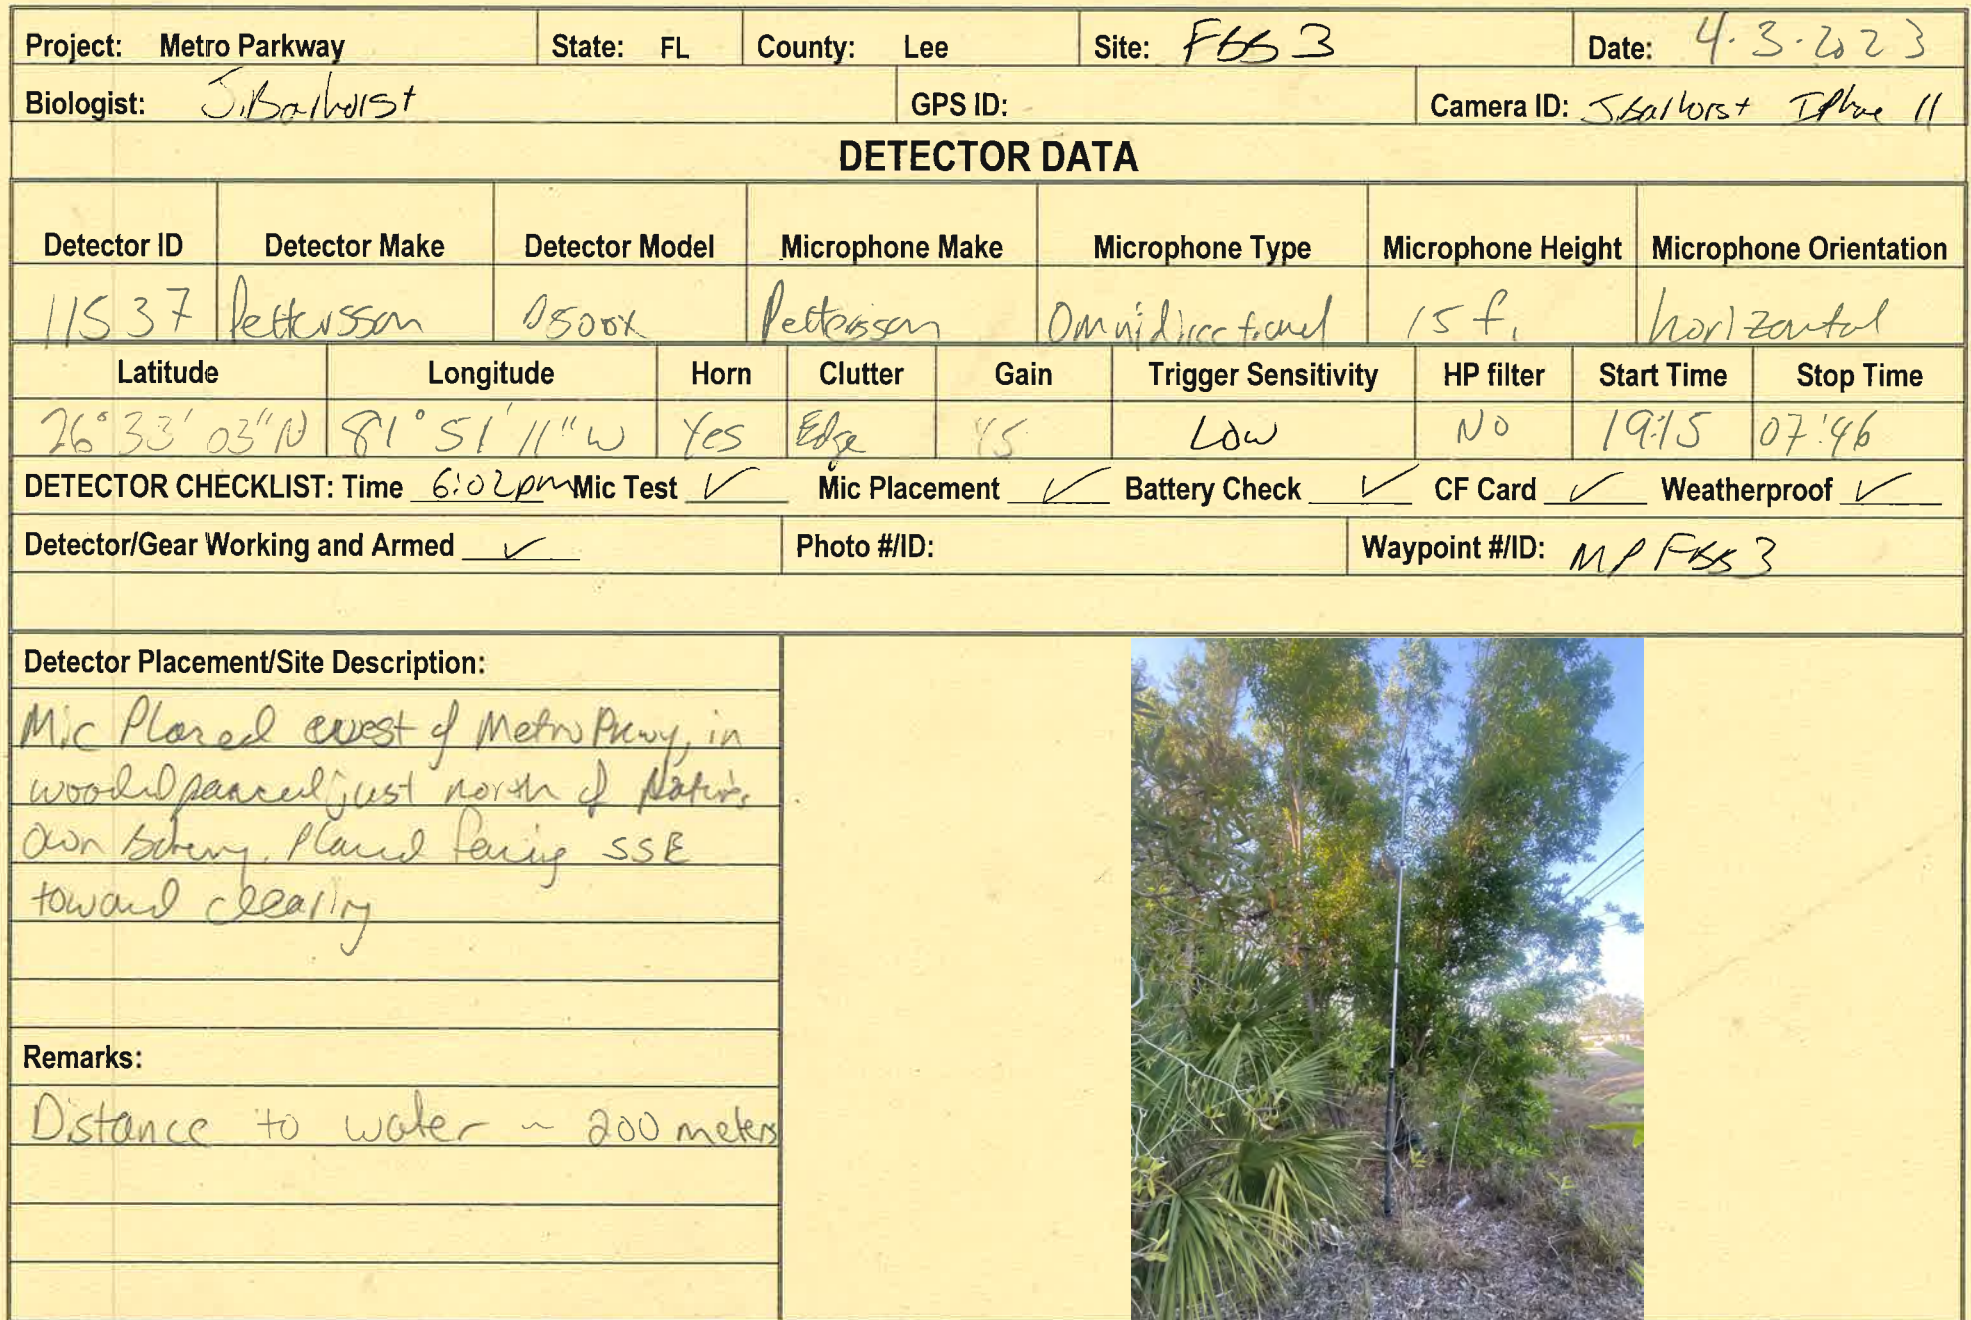 Project: Metro Parkway State: FL County: Lee Site: FBB 3 Date: 4.3.2023
Biologist: J.Balhorst GPS ID: Camera ID: J.Balhorst IPhone 11
DETECTOR DATA
Detector ID Detector Make Detector Model Microphone Make Microphone Type Microphone Height Microphone Orientation
11537 Pettersson D500X Pettersson Omnidirectional 15 f. horizontal
Latitude Longitude Horn Clutter Gain Trigger Sensitivity HP filter Start Time Stop Time
26° 33' 03" N 81° 51' 11" W Yes Edge 45 Low No 19:15 07:46
DETECTOR CHECKLIST: Time 6:02pm Mic Test ✓ Mic Placement ✓ Battery Check ✓ CF Card ✓ Weatherproof ✓
Detector/Gear Working and Armed ✓ Photo #/ID: Waypoint #/ID: MP FBB 3
Detector Placement/Site Description:
Mic Placed west of Metro Pkwy, in
wooded parcel just north of Nature's
Own Bakery. Placed facing SSE
toward clearing
Remarks:
Distance to water ~ 200 meters